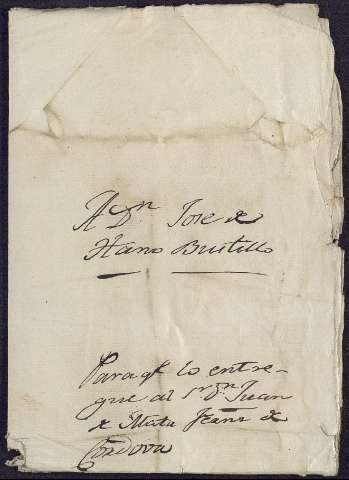 A Dn. Jose de
Hano Bustillo
Para q.e lo entre-
gue al Sr. Dn. Juan
de Mata de
Cordova